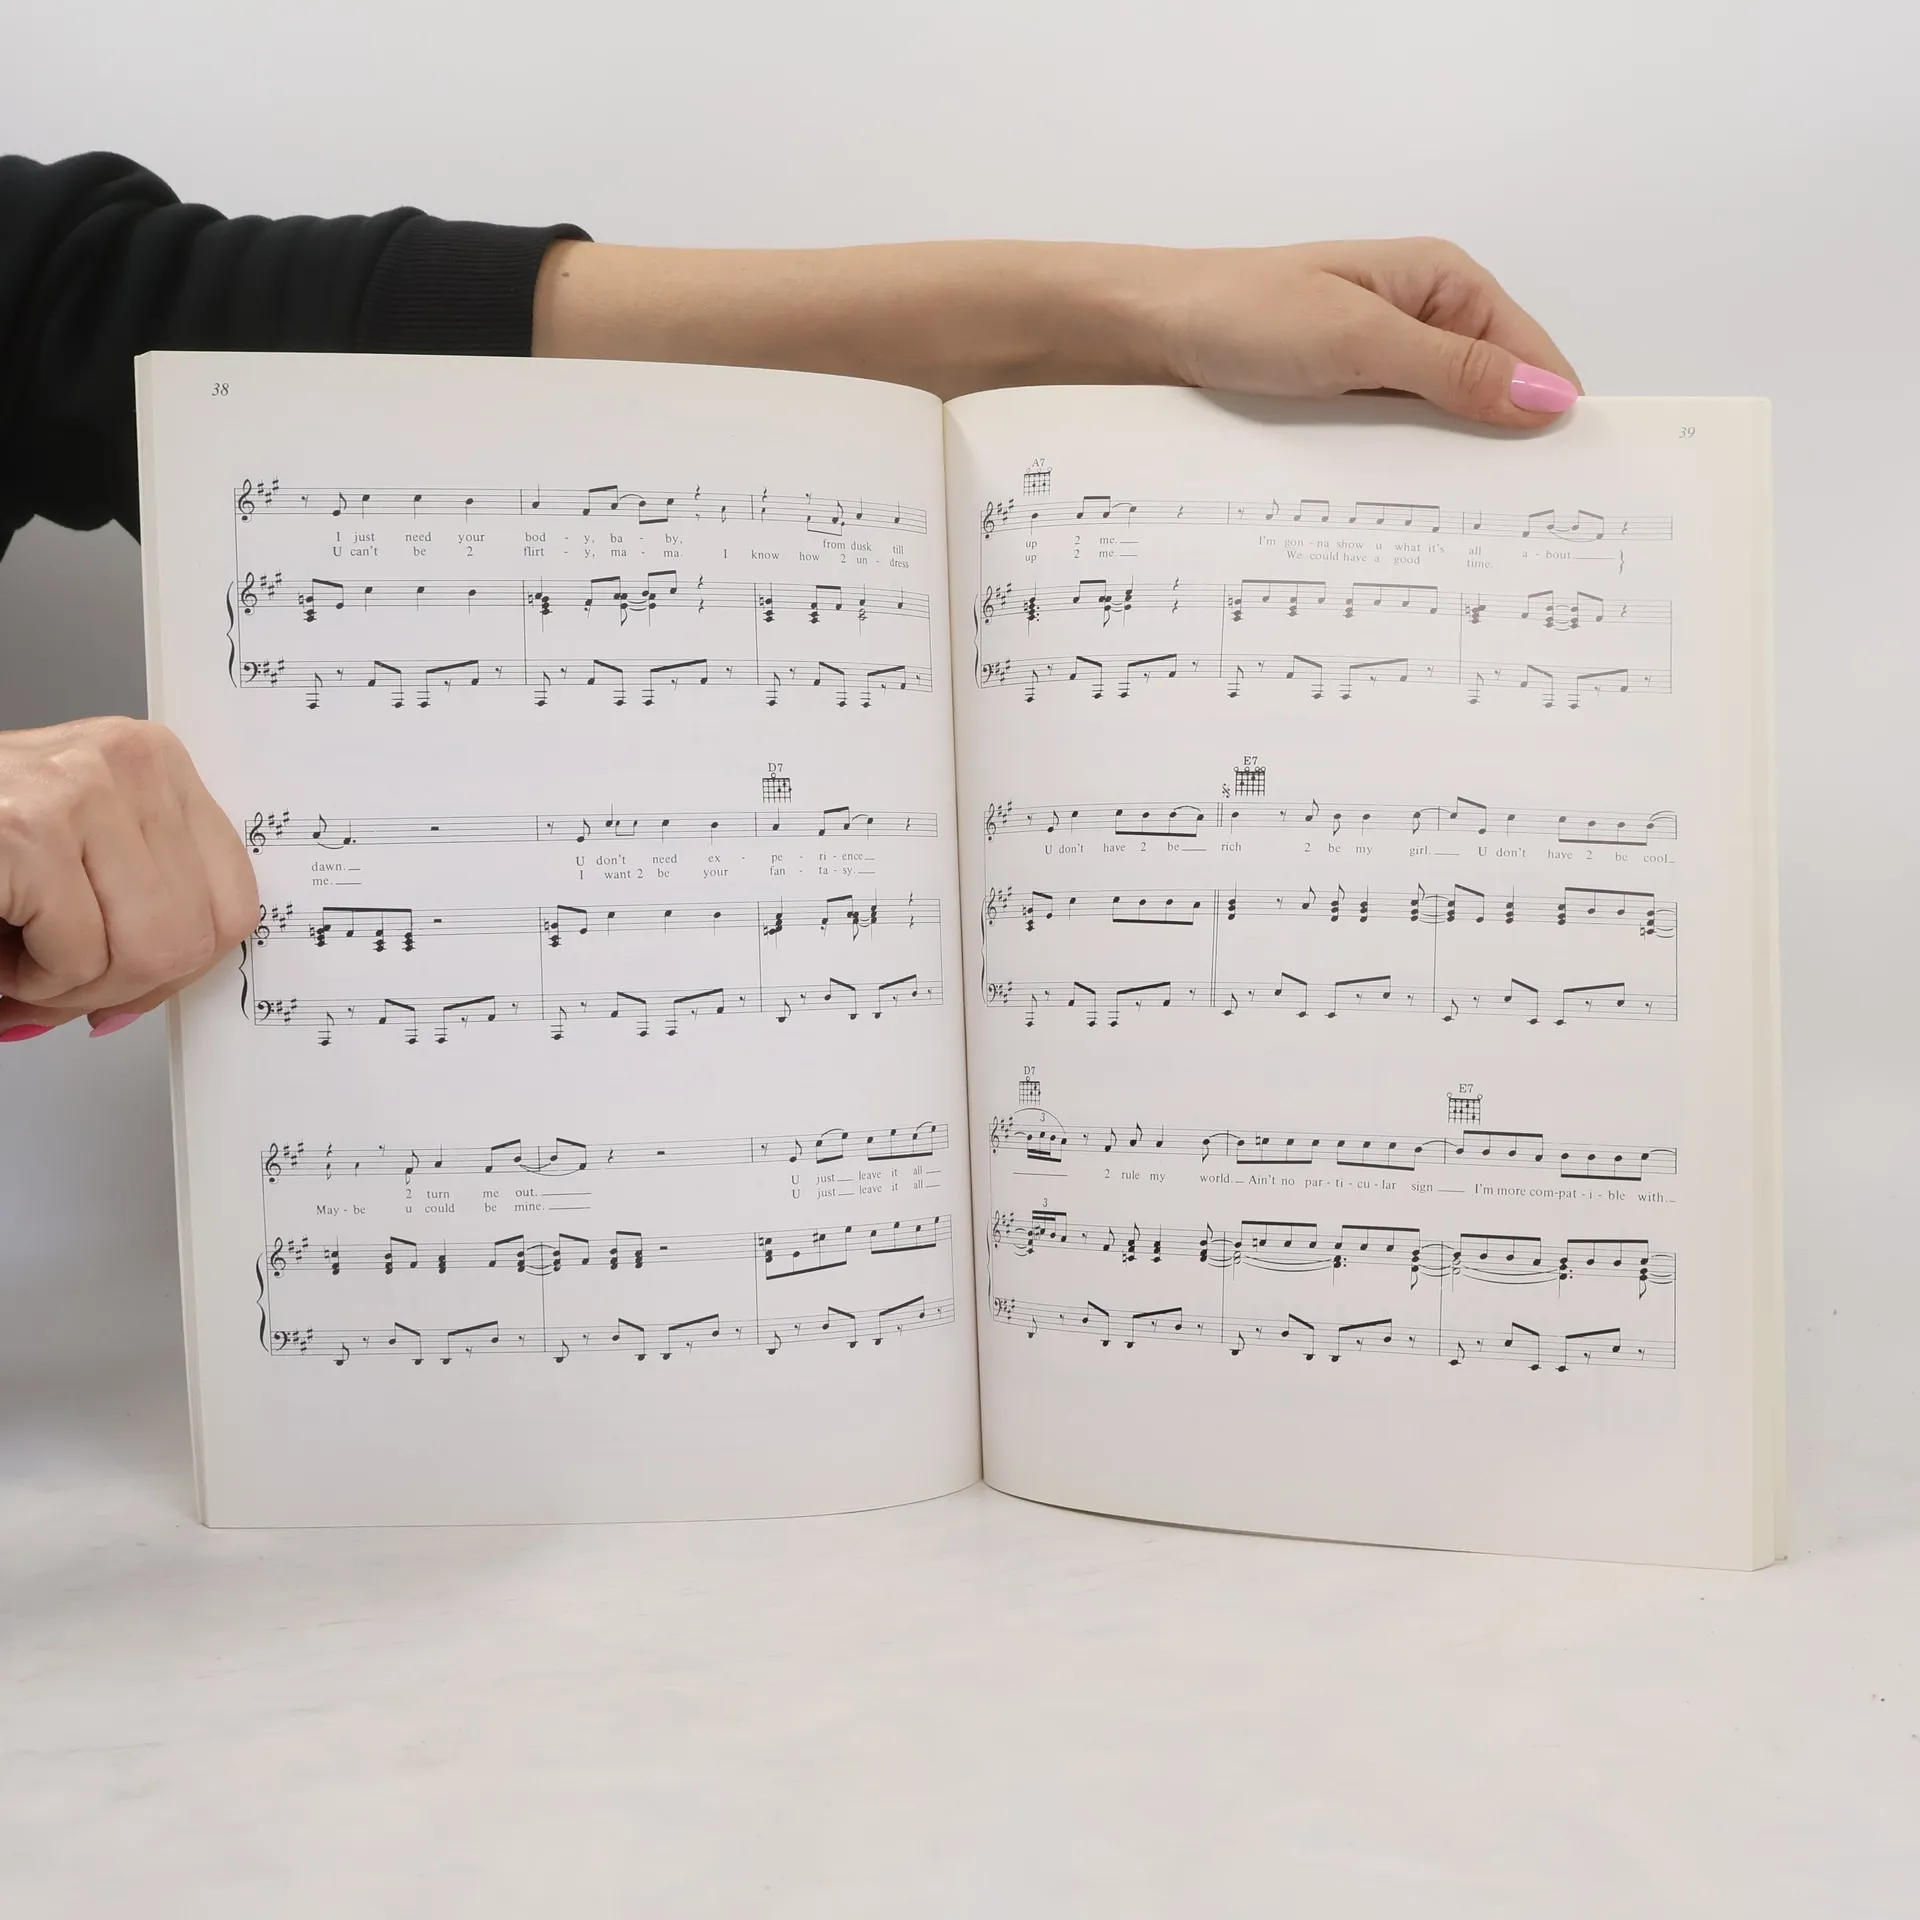 38
I just need your bod - y, ba - by, from dusk till
U can't be 2 flirt - y, ma - ma. I know how 2 un - dress
D7
dawn.
me.
U don't need ex - pe - ri - ence
I want 2 be your fan - ta - sy.
2 turn me out. U just leave it all
May - be u could be mine. U just leave it all
39
A7
up 2 me. I'm gon - na show u what it's all a - bout
up 2 me. We could have a good time.
E7
U don't have 2 be rich 2 be my girl. U don't have 2 be cool
D7
E7
3
2 rule my world. Ain't no par - ti - cu - lar sign I'm more com-pat - i - ble with.
3